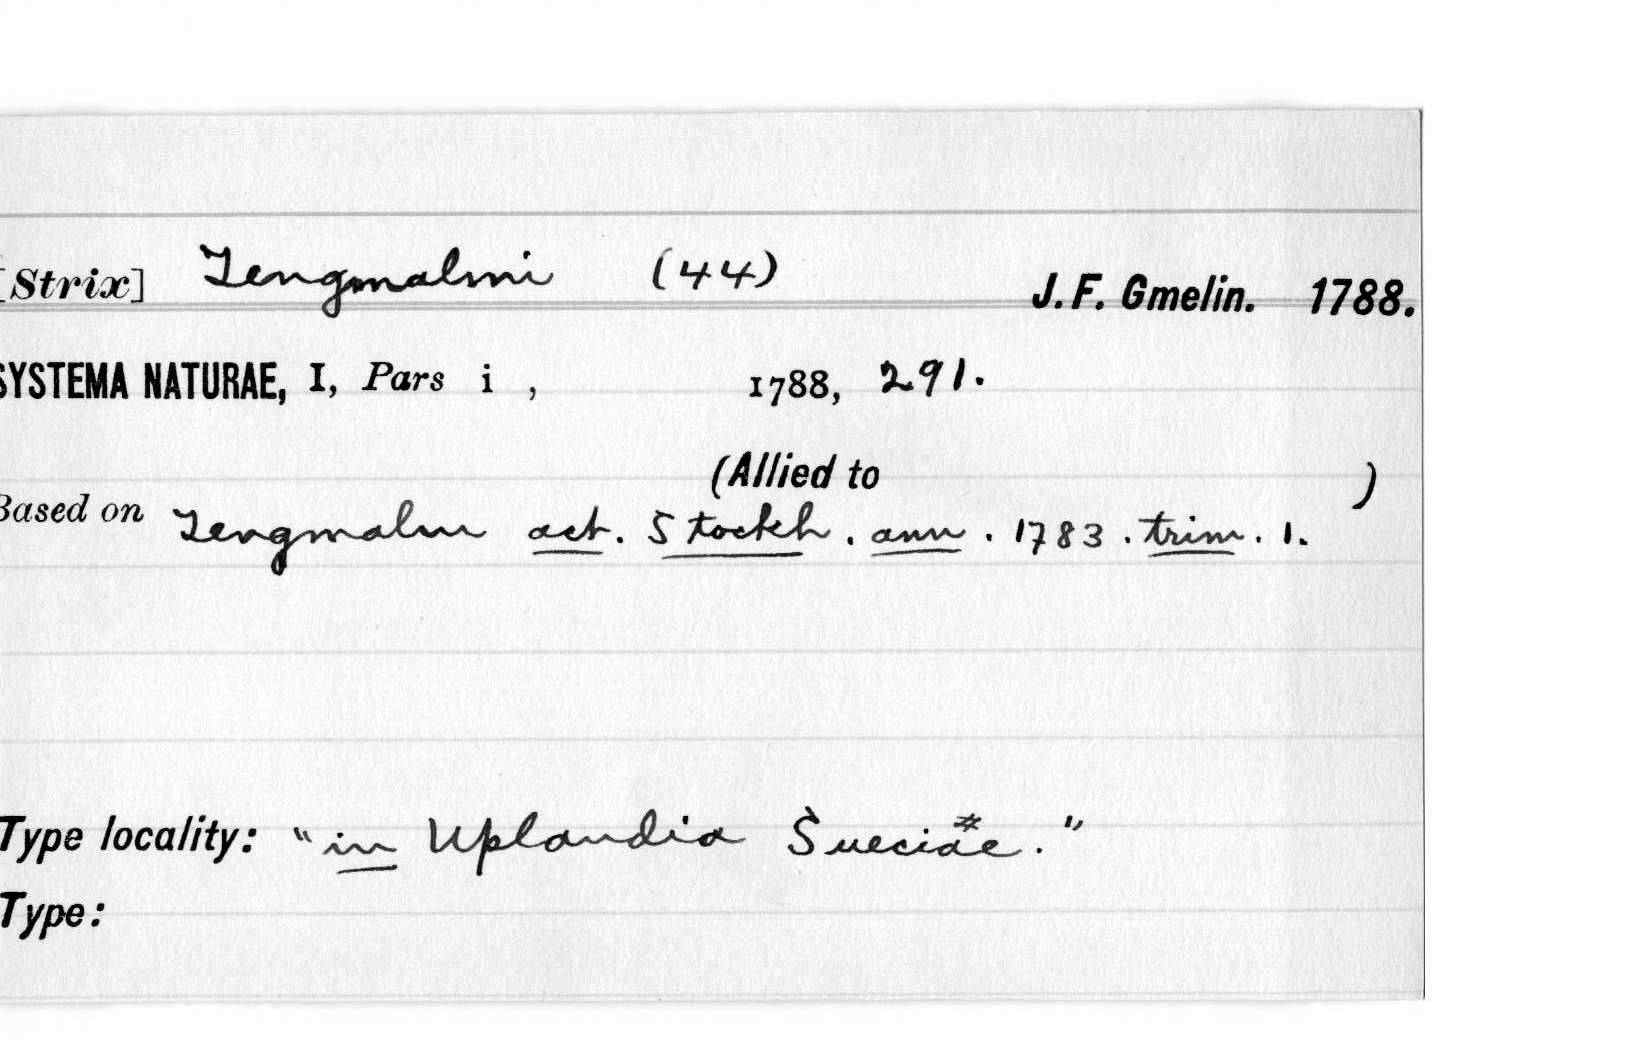 [Strix] Tengmalmi (44) J. F. Gmelin. 1788.
SYSTEMA NATURAE, I, Pars i , 1788, 291.
(Allied to )
Based on Tengmalm act. Stockh. ann. 1783. trim. 1.
Type locality: "in Uplandia Sueciae."
Type: